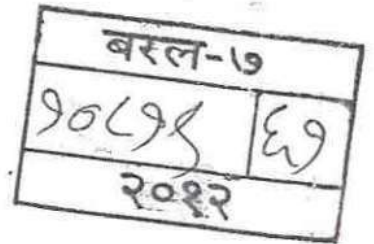 बरल-७
१०८१९ ६१
२०१२